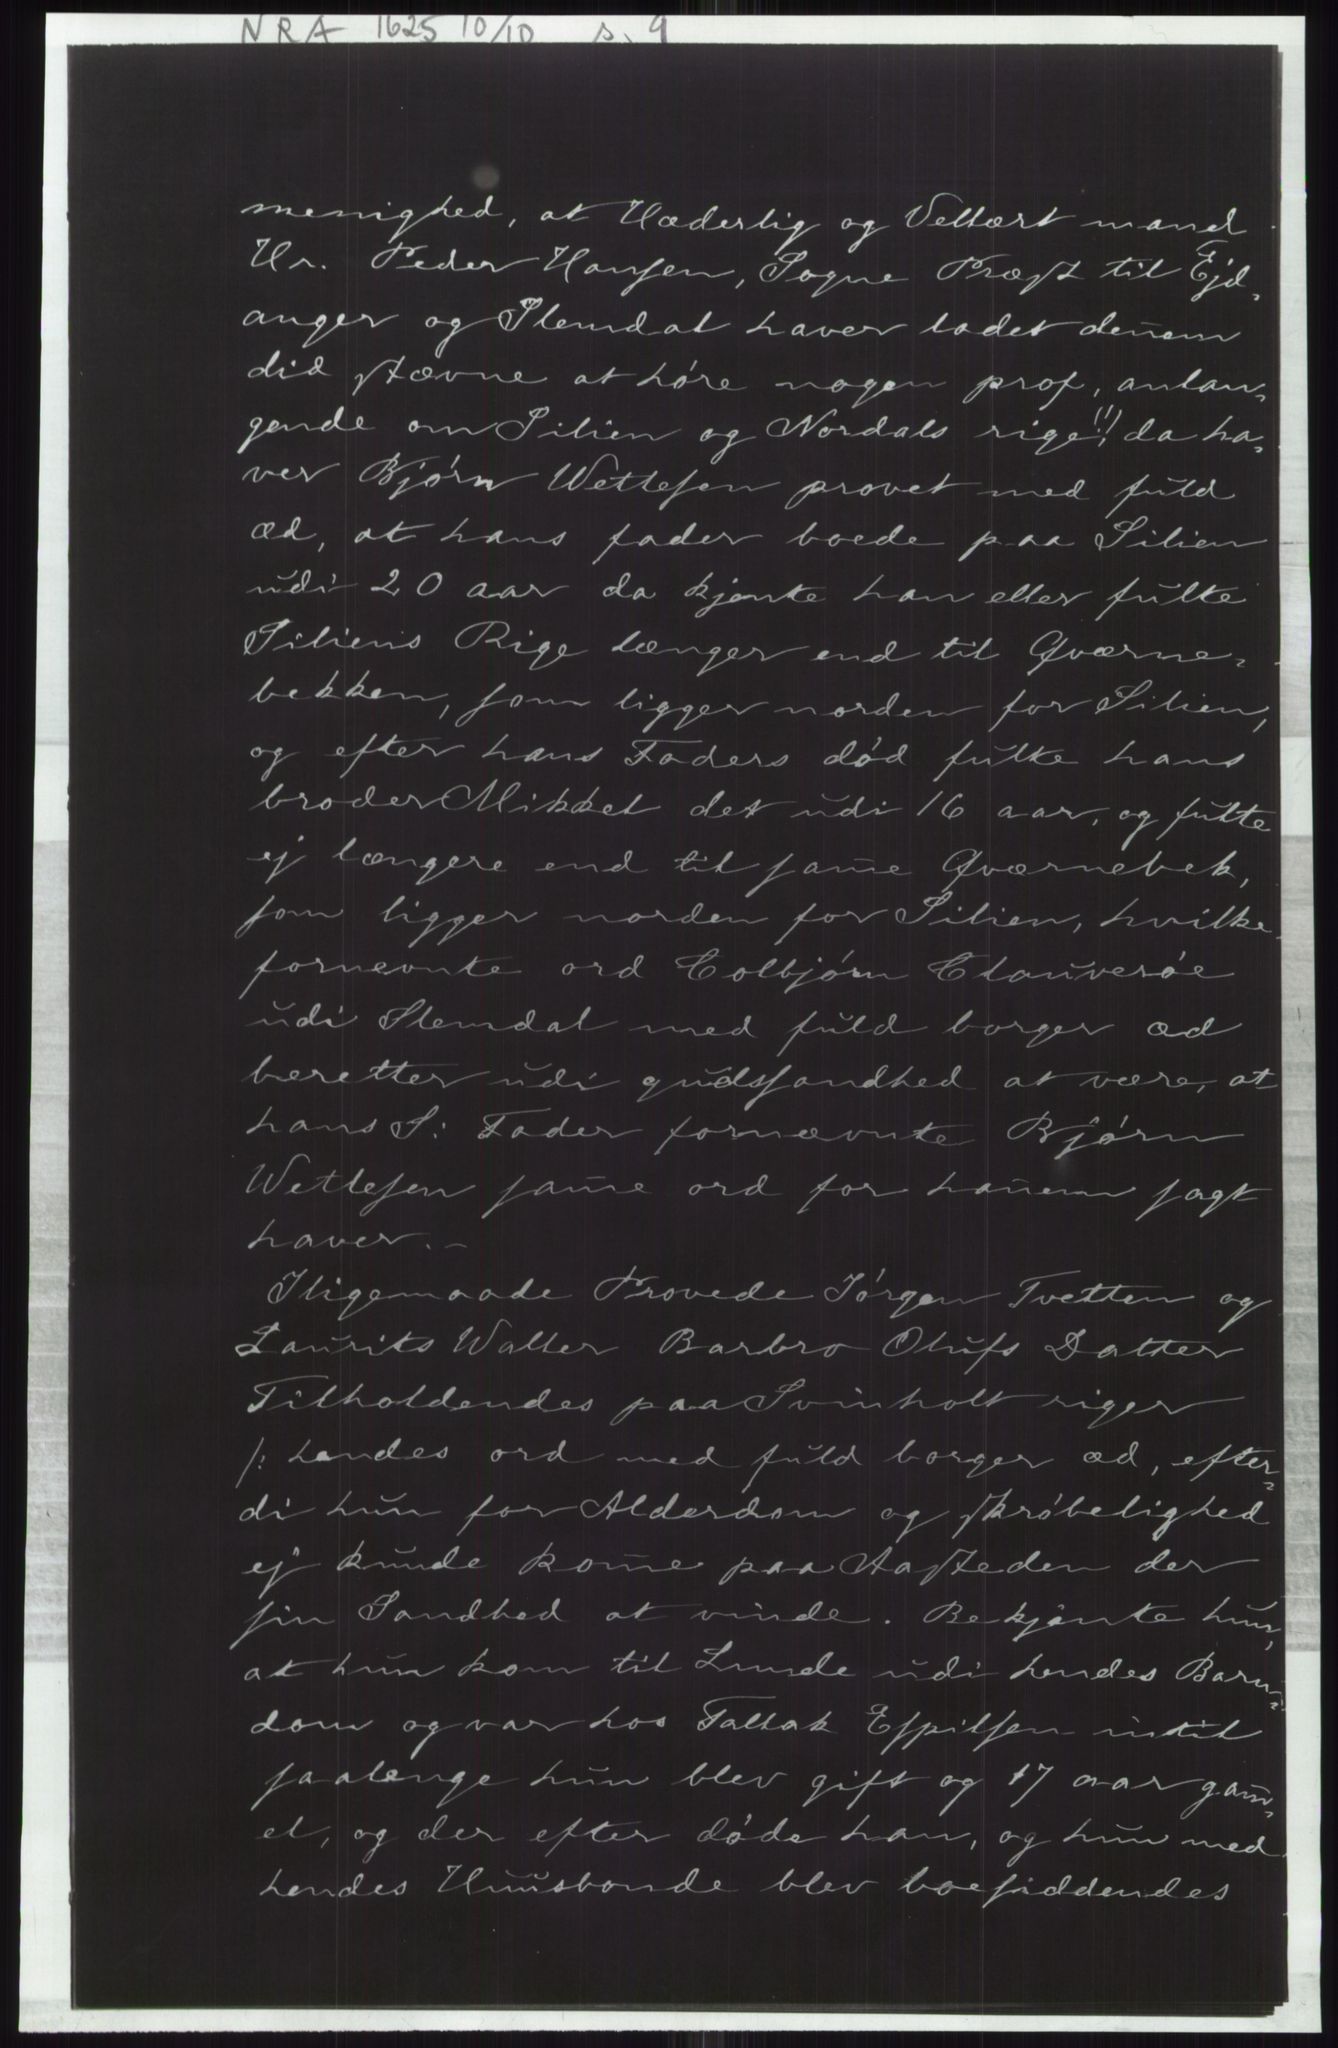 NRA 1625 10/10 s. 9
menighed, at Hæderlig og Vellært mand
Hr. Peder Hansen, Sogne Præst til Ejd-
anger og Slemdal haver ladet dennem
did stævne at høre nogen prof, anlan-
gende om Silien og Nordals rige(!) da ha-
ver Bjørn Wetlesen provet med fuld
æd, at hans fader boede paa Silien
udi 20 aar da kjente han eller fulte
Siliens Rige længer end til Qværne-
bekken, som ligger norden for Silien,
og efter hans Faders død fulte hans
broder Mikkel det udi 16 aar, og fulte
ej længere end til samme Qværnebek,
som ligger norden for Silien, hvilke
fornevnte ord Colbjørn Clauverøe
udi Slemdal med fuld borger æd
beretter udi gudssandhed at være, at
hans S: Fader fornævnte Bjørn
Wetlesen samme ord for hannem sagt
haver.-
Iligemaade Provede Jørgen Tvetten og
Laurits Walter Barbro Olufs Datter
Tilholdendes paa Svinholt rigger
/: hendes ord med fuld borger æd, efter-
di hun for Alderdom og skrøbelighed
ej kunde komme paa Aasteden der
sin Sandhed at vinde. Bekjente hun,
at hun kom til Lunde udi hendes Barn-
dom og var hos Tallak Espilsen intil
saalenge hun blev gift og 17 aar gam-
el, og der efter døde han, og hun med
hendes Huusbonde blev boesiddendes